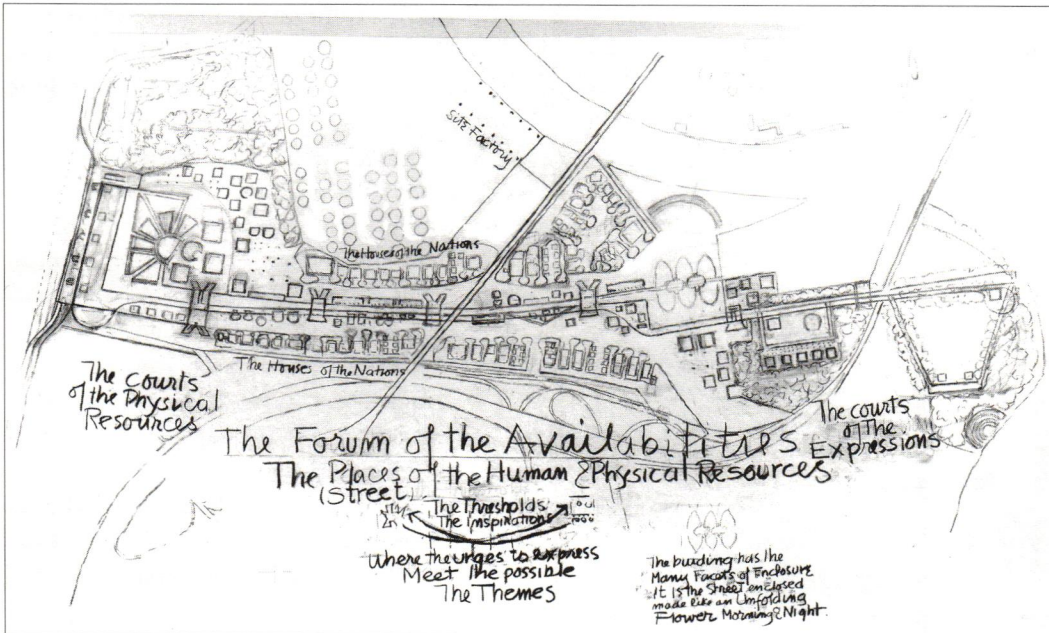 Site Factory
The Houses of the Nations
The Houses of the Nations
The Courts
of the Physical
Resources
The courts
of The
Expressions
The Forum of the Availabilities
The Places of the Human & Physical Resources
(Street)
The Thresholds
The Inspirations
Where the urges to express
Meet the possible
The Themes
The building has the
Many Facets of Enclosure
It is the Street enclosed
made like an Unfolding
Flower Morning & Night.